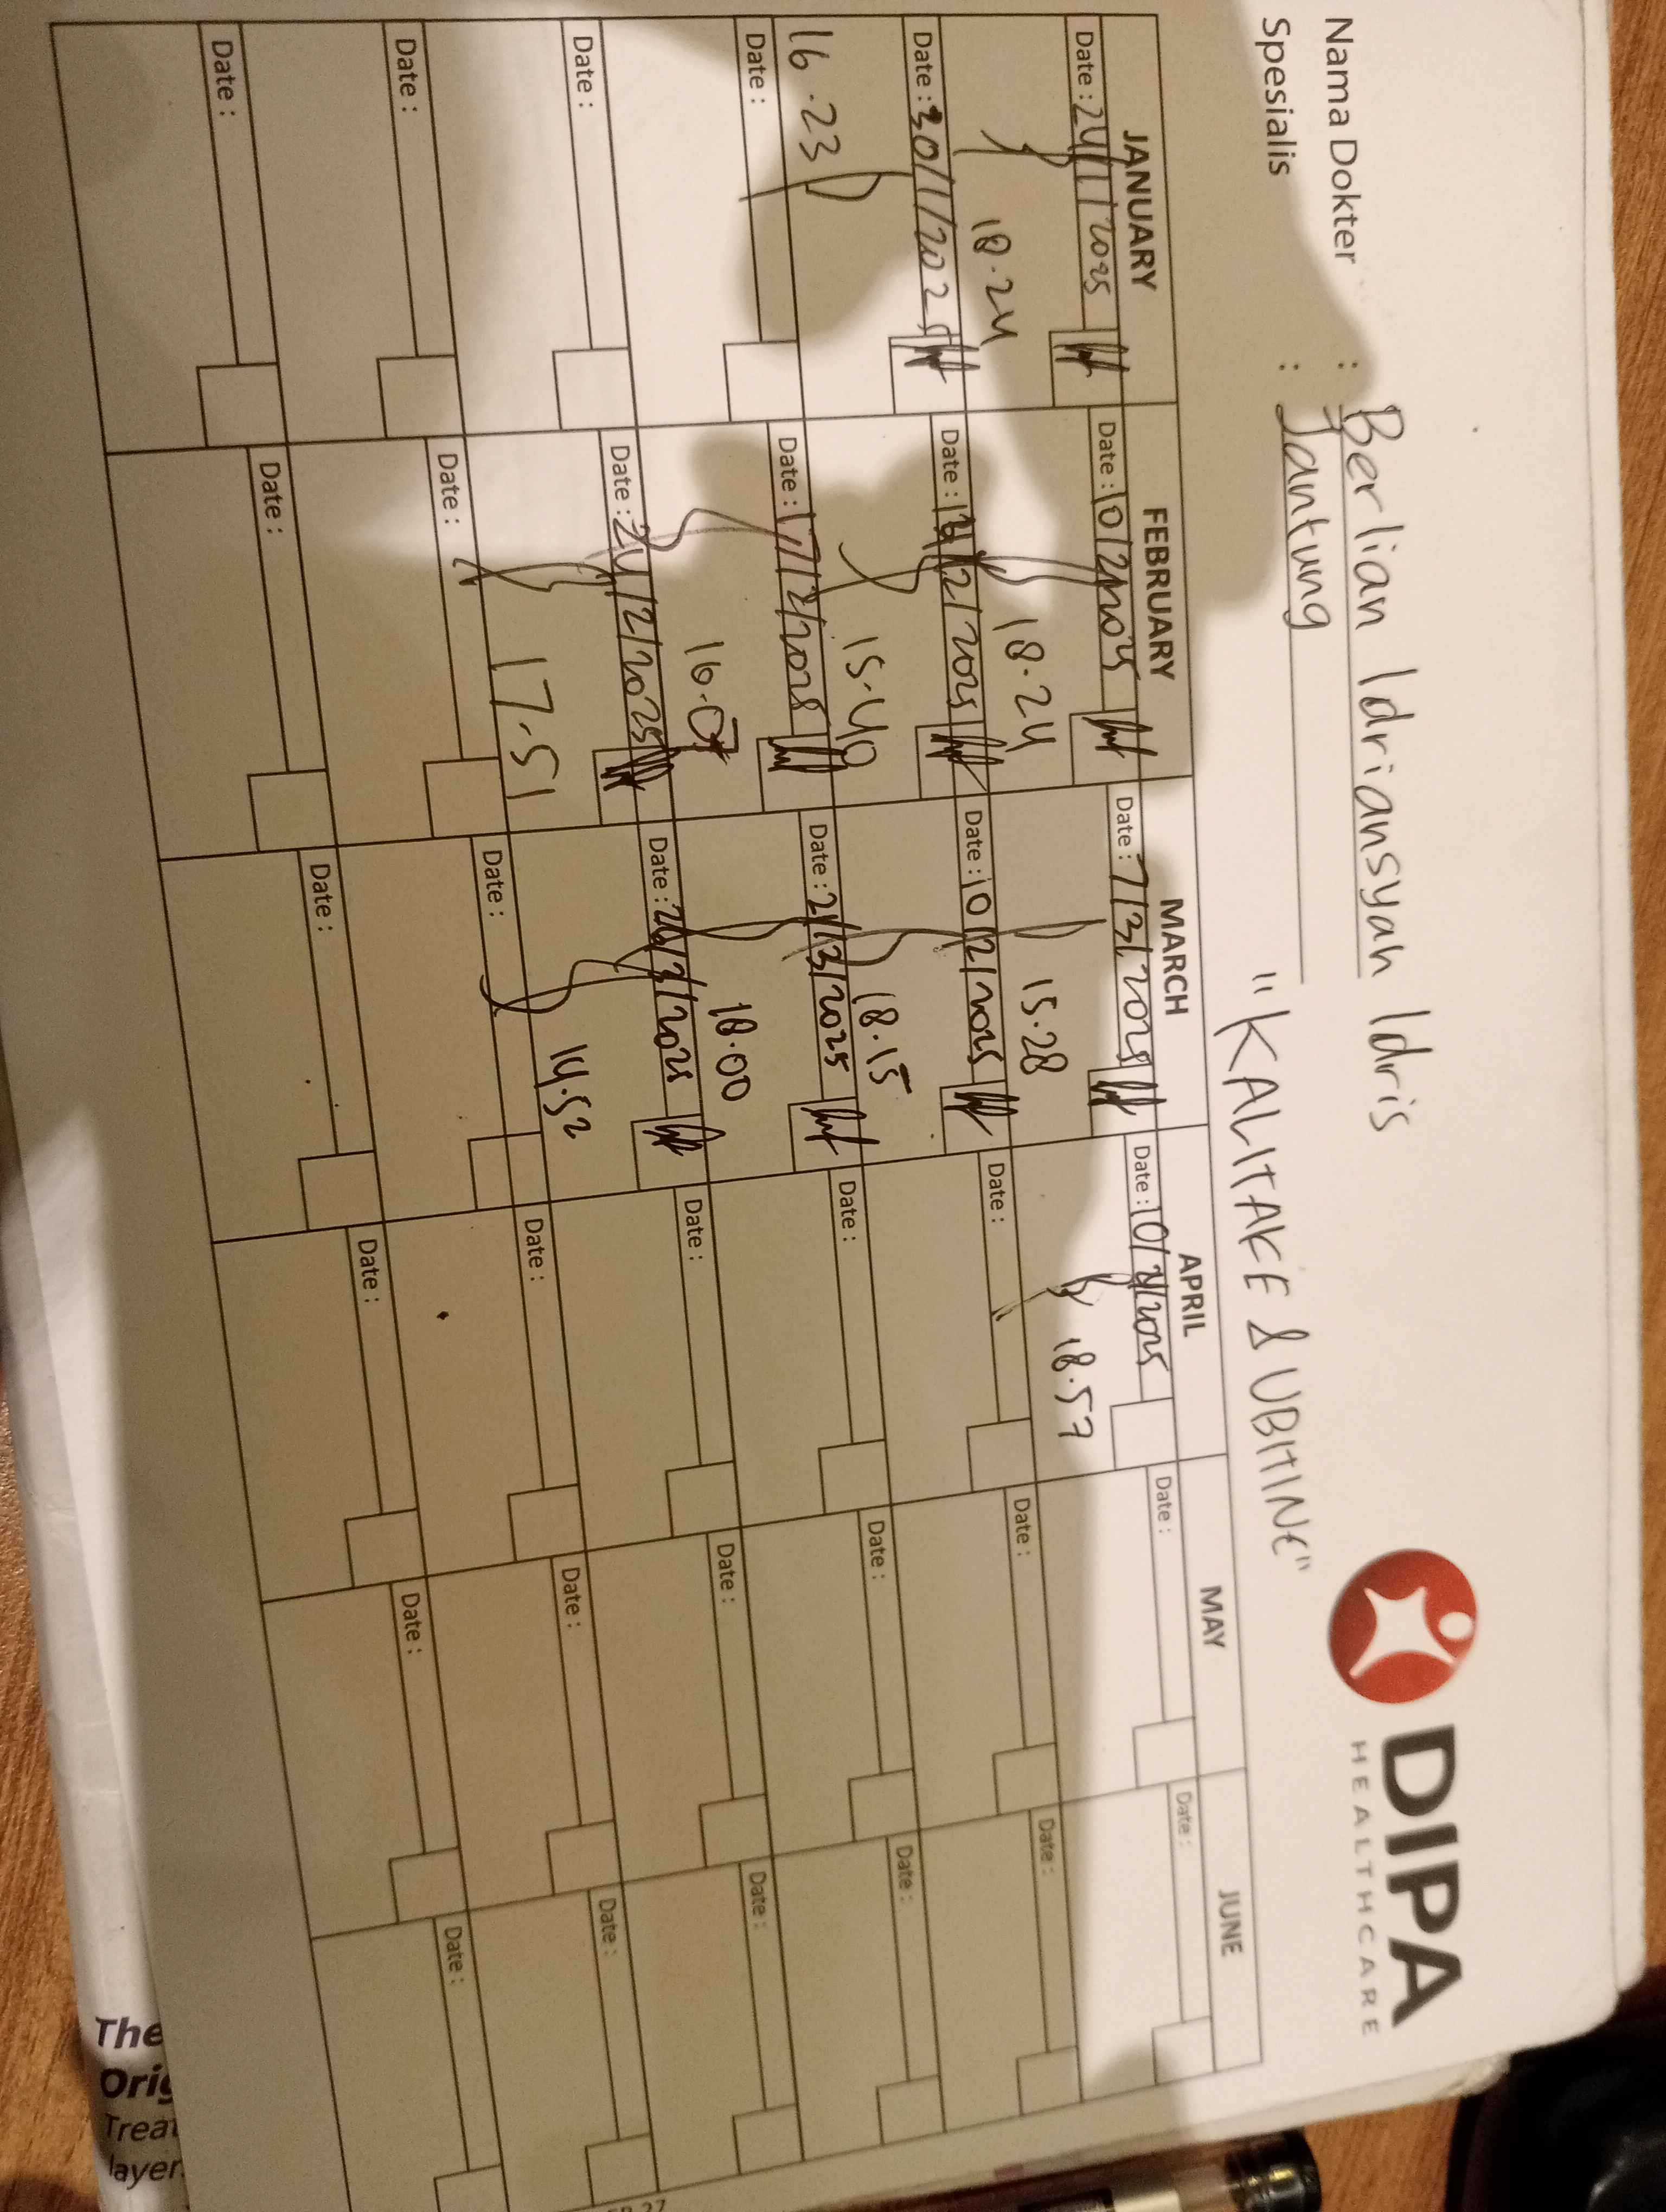 Nama Dokter : Berlian Idriansyah Idris
Spesialis : Jantung
"KALITAKE & UBITINE"
DIPA
HEALTHCARE
JANUARY FEBRUARY MARCH APRIL MAY JUNE
Date : 24/1/2025 Date : 10/2/2025 Date : 7/3/2025 Date : 10/4/2025 Date : Date :
18.24 18.24 15.28 18.57
Date : 30/1/2025 Date : 13/2/2025 Date : 10/2/2025 Date : Date : Date :
16.23 15.40 18.15
Date : Date : 17/2/2025 Date : 21/3/2025 Date : Date : Date :
16.07 18.00
Date : Date : 24/2/2025 Date : 26/3/2025 Date : Date : Date :
17.51 14.52
Date : Date : Date : Date : Date : Date :
Date : Date : Date : Date : Date : Date :
The
Orig
Treat
layer